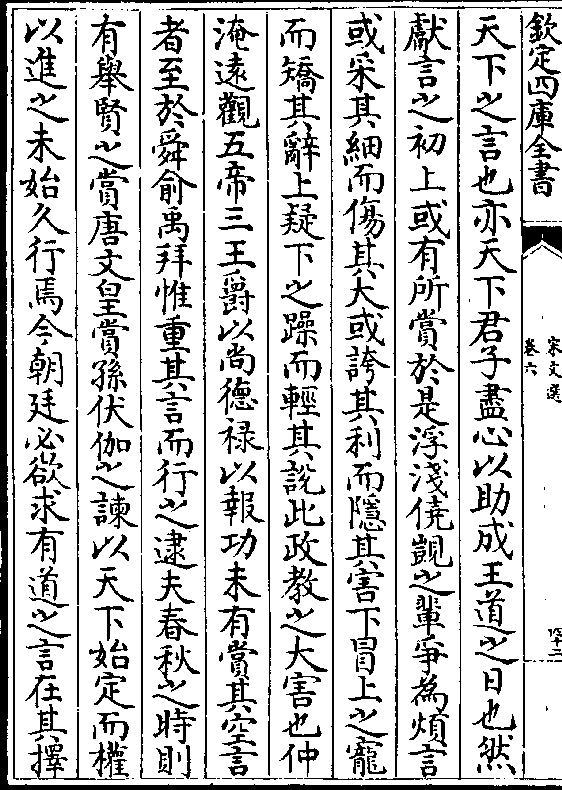 欽定四庫全書
宋文選
卷六
四十二
天下之言也亦天下君子盡心以助成王道之日也然
獻言之初上或有所賞於是浮淺僥覬之輩爭為煩言
或采其細而傷其大或誇其利而隱其害下冒上之寵
而矯其辭上疑下之躁而輕其說此政教之大害也仲
淹遠觀五帝三王爵以尚德祿以報功未有賞其空言
者至於舜俞禹拜惟重其言而行之逮夫春秋之時則
有舉賢之賞唐文皇賞孫伏伽之諫以天下始定而權
以進之未始久行焉今朝廷必欲求有道之言在其擇